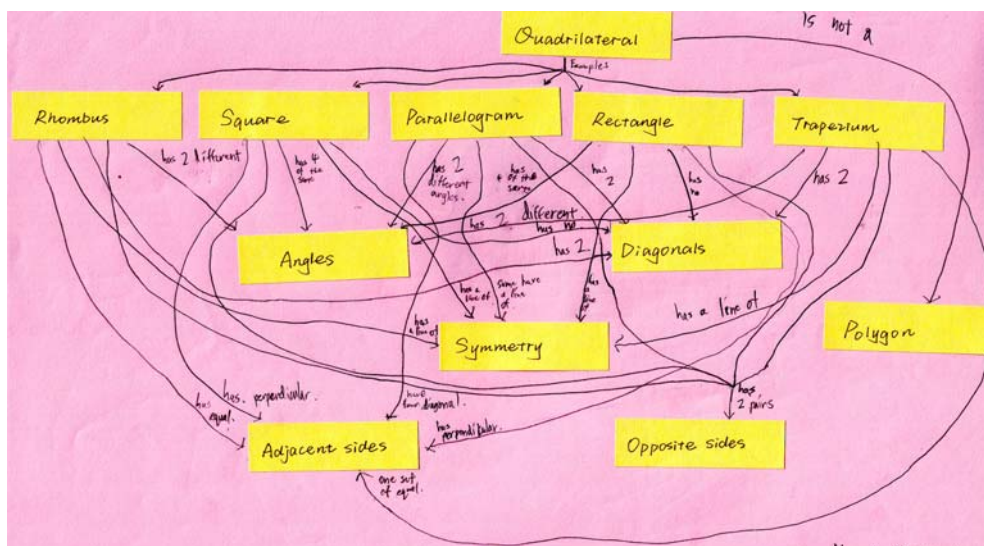 is not a
Quadrilateral
Examples
Rhombus
Square
Parallelogram
Rectangle
Trapezium
has 2 different
has 4
of the
same
has 2
different
angles.
has
4 of the
same
has
2
has
no
has 2
has 2 different
has no
has 2.
Angles
Diagonals
has a
line of.
some have
a line
of.
has
a
line of
has a line of
has
a line of
Symmetry
Polygon
has
equal.
has. perpendicular.
diagonal.
has
perpendicular.
has
2 pairs
Adjacent sides
Opposite sides
one set
of equal.